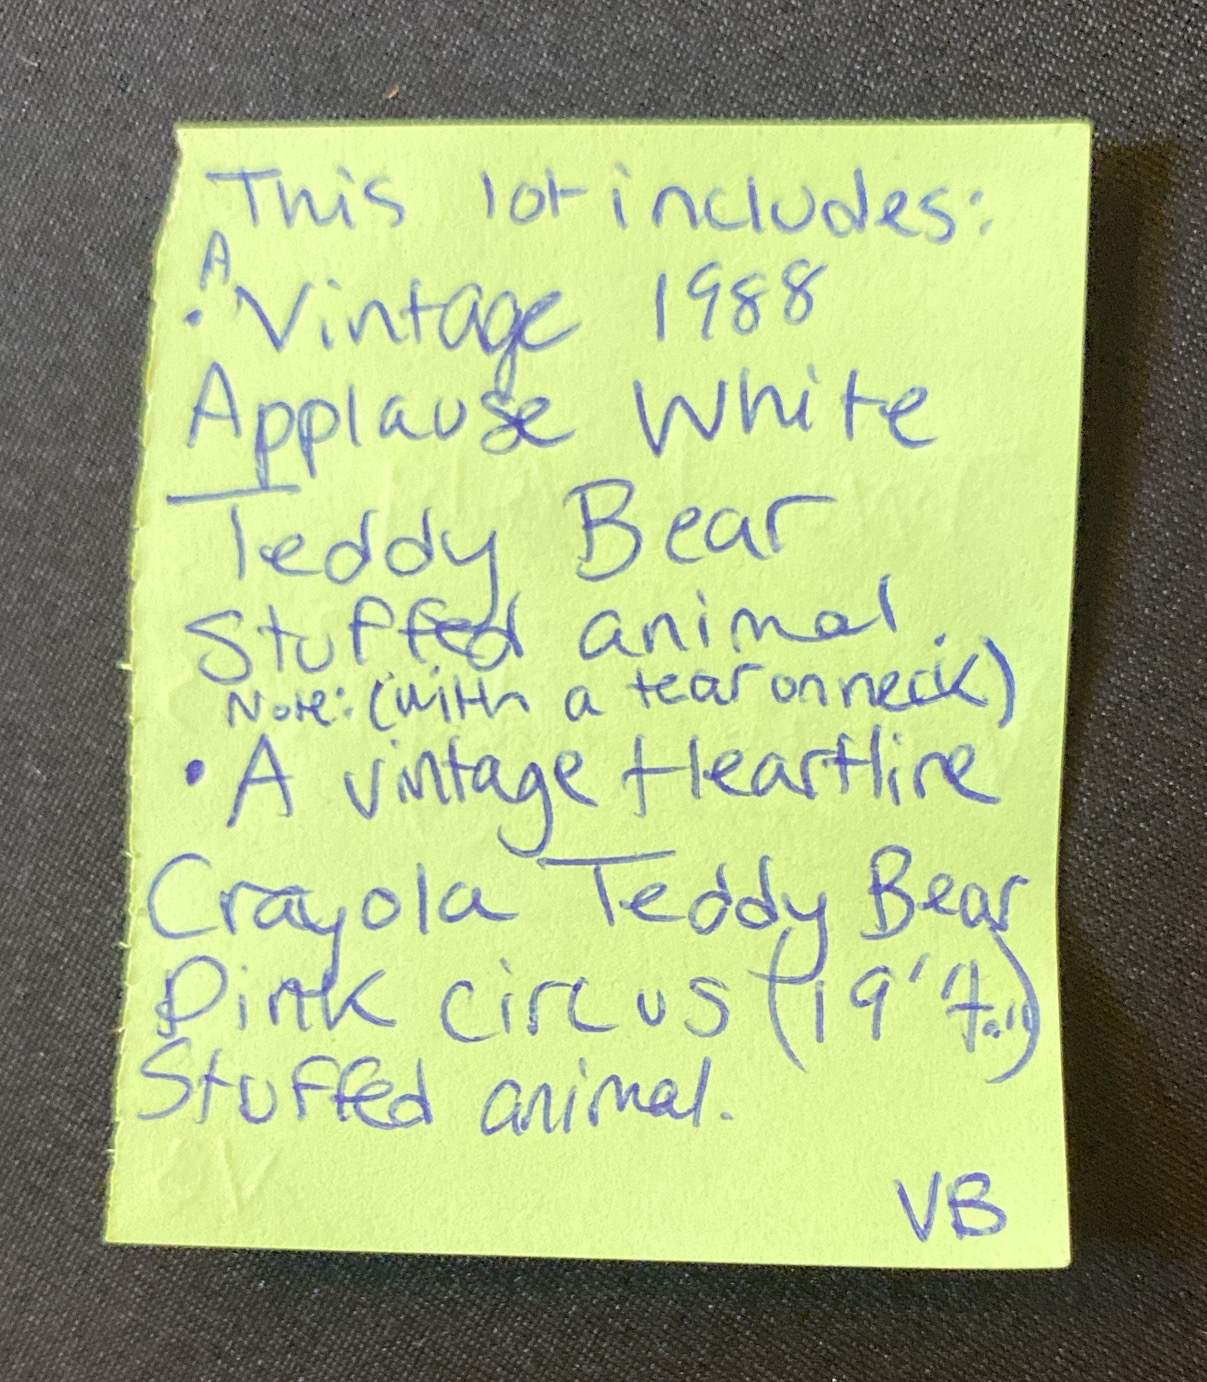 This lot includes:
A
• Vintage 1988
Applause White
Teddy Bear
Stuffed animal.
Note: (with a tear on neck)
• A vintage Heartline
Crayola Teddy Bear
Pink circus (19"
Stuffed animal.
VB